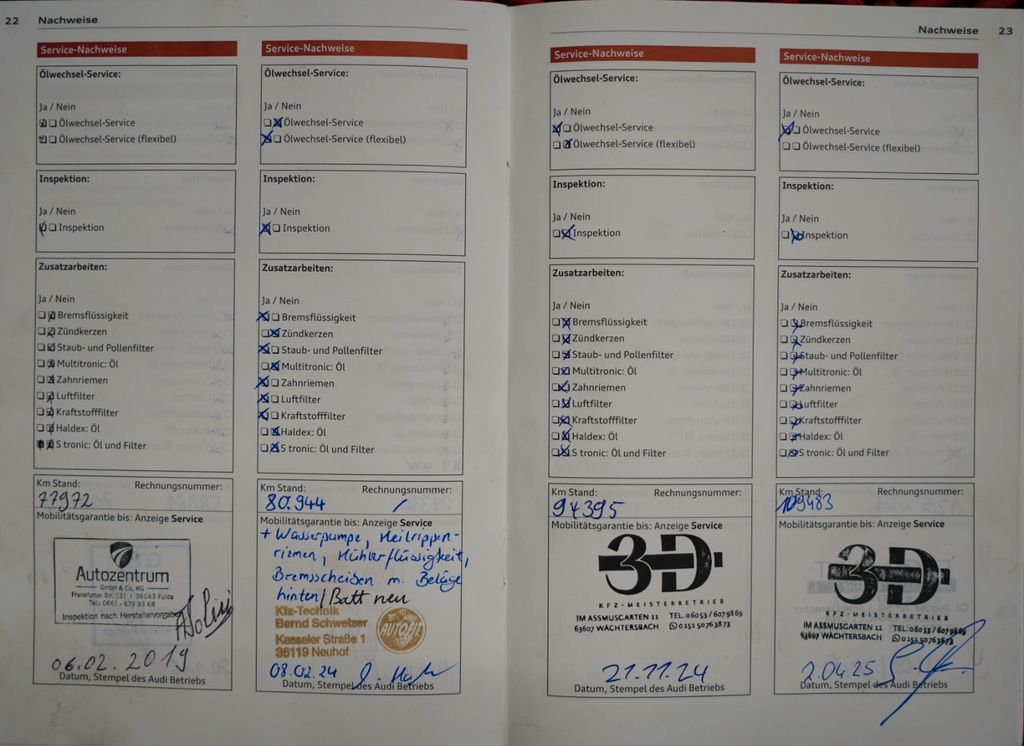 22 Nachweise
Service-Nachweise
Ölwechsel-Service:
Ja / Nein
Ölwechsel-Service
Ölwechsel-Service (flexibel)
Inspektion:
Ja / Nein
Inspektion
Zusatzarbeiten:
Ja / Nein
Bremsflüssigkeit
Zündkerzen
Staub- und Pollenfilter
Multitronic: Öl
Zahnriemen
Luftfilter
Kraftstofffilter
Haldex: Öl
S tronic: Öl und Filter
Km Stand: Rechnungsnummer:
77972
Mobilitätsgarantie bis: Anzeige Service
Autozentrum
GmbH & Co. KG
Frankfurter Str. 131 | 36043 Fulda
Tel.: 0661 - 679 33 68
Inspektion nach Herstellervorgaben
06.02.2019
Datum, Stempel des Audi Betriebs
Service-Nachweise
Ölwechsel-Service:
Ja / Nein
Ölwechsel-Service
Ölwechsel-Service (flexibel)
Inspektion:
Ja / Nein
Inspektion
Zusatzarbeiten:
Ja / Nein
Bremsflüssigkeit
Zündkerzen
Staub- und Pollenfilter
Multitronic: Öl
Zahnriemen
Luftfilter
Kraftstofffilter
Haldex: Öl
S tronic: Öl und Filter
Km Stand: Rechnungsnummer:
80.944 /
Mobilitätsgarantie bis: Anzeige Service
+ Wasserpumpe, Keilrippen-
riemen, Kühlerflüssigkeit,
Bremsscheiben m. Beläge
hinten / Batt neu
Kfz-Technik
Bernd Schweizer
Kasseler Straße 1
36119 Neuhof
08.02.24
Datum, Stempel des Audi Betriebs
Nachweise 23
Service-Nachweise
Ölwechsel-Service:
Ja / Nein
Ölwechsel-Service
Ölwechsel-Service (flexibel)
Inspektion:
Ja / Nein
Inspektion
Zusatzarbeiten:
Ja / Nein
Bremsflüssigkeit
Zündkerzen
Staub- und Pollenfilter
Multitronic: Öl
Zahnriemen
Luftfilter
Kraftstofffilter
Haldex: Öl
S tronic: Öl und Filter
Km Stand: Rechnungsnummer:
94395
Mobilitätsgarantie bis: Anzeige Service
3D
KFZ-MEISTERBETRIEB
IM ASSMUSGARTEN 11 TEL. 06053/6079869
63607 WÄCHTERSBACH 0151 50763873
21.11.24
Datum, Stempel des Audi Betriebs
Service-Nachweise
Ölwechsel-Service:
Ja / Nein
Ölwechsel-Service
Ölwechsel-Service (flexibel)
Inspektion:
Ja / Nein
Inspektion
Zusatzarbeiten:
Ja / Nein
Bremsflüssigkeit
Zündkerzen
Staub- und Pollenfilter
Multitronic: Öl
Zahnriemen
Luftfilter
Kraftstofffilter
Haldex: Öl
S tronic: Öl und Filter
Km Stand: Rechnungsnummer:
109483
Mobilitätsgarantie bis: Anzeige Service
3D
KFZ-MEISTERBETRIEB
IM ASSMUSGARTEN 11 TEL. 06053/6079869
63607 WÄCHTERSBACH 0151 50763873
2.04.25
Datum, Stempel des Audi Betriebs